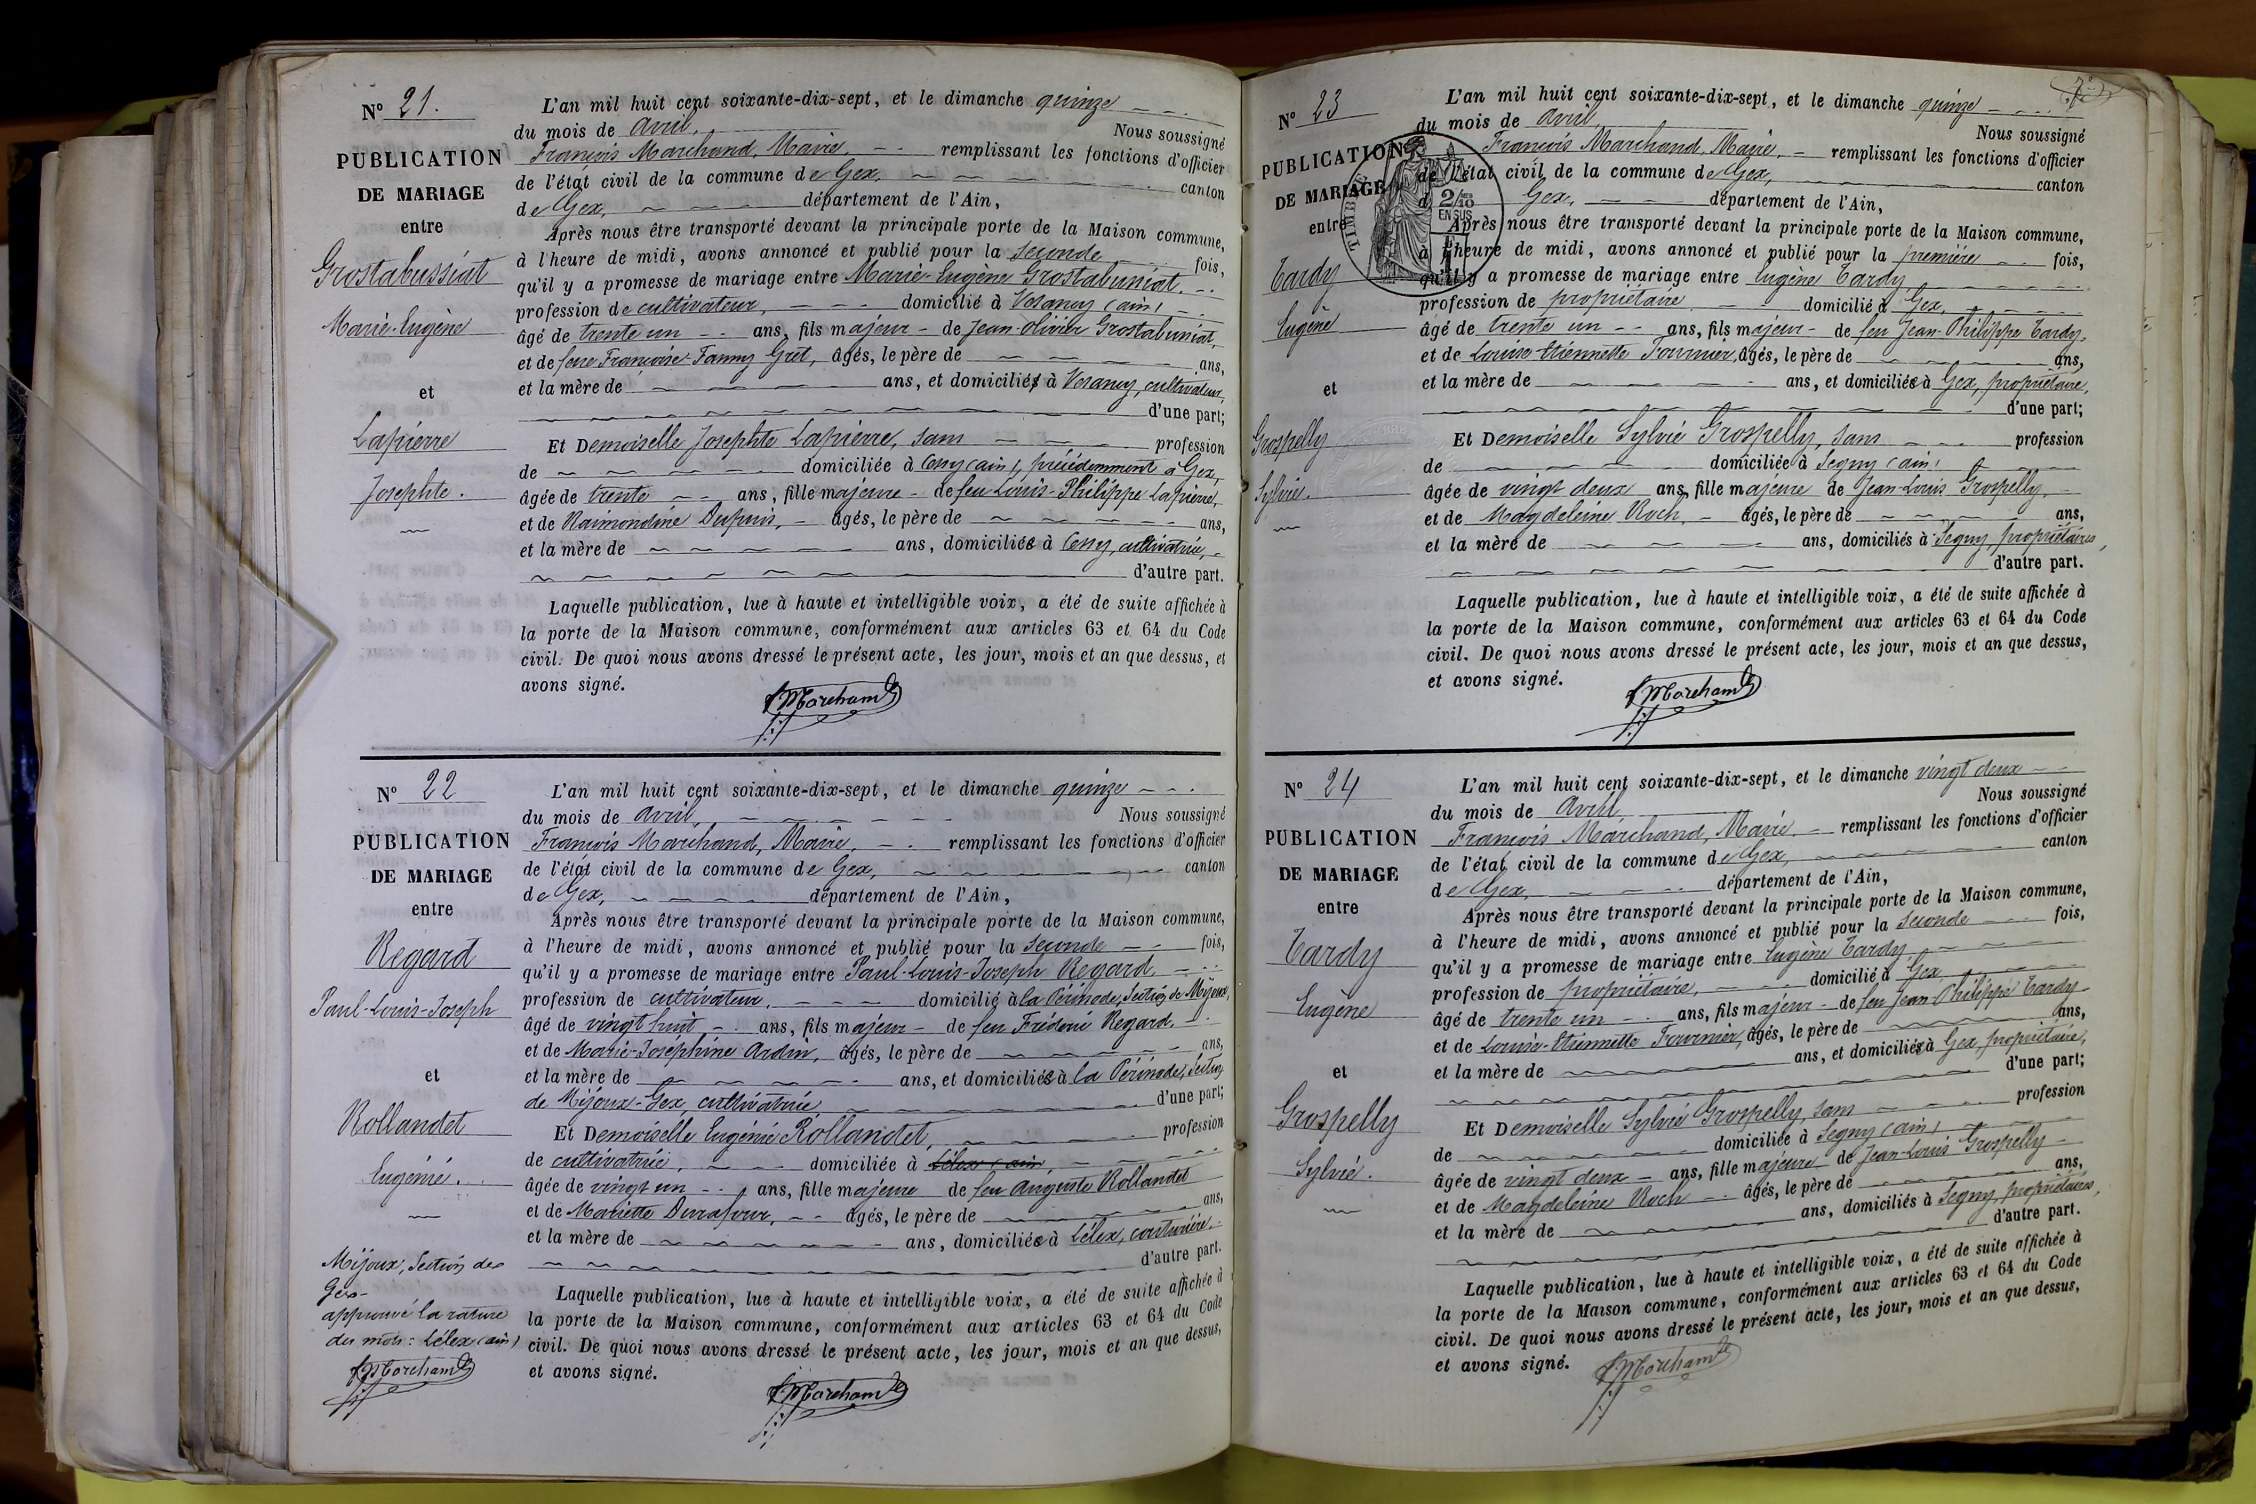 N° 21.
PUBLICATION
DE MARIAGE
entre
Grostabussiat
Marie-Eugène
et
Lapierre
Josephte.
L'an mil huit cent soixante-dix-sept, et le dimanche quinze
du mois de avril, Nous soussigné
François Marchand, Maire, remplissant les fonctions d'officier
de l'état civil de la commune de Gex, canton
de Gex, département de l'Ain,
Après nous être transporté devant la principale porte de la Maison commune,
à l'heure de midi, avons annoncé et publié pour la seconde fois,
qu'il y a promesse de mariage entre Marie-Eugène Grostabussiat,
profession de cultivateur, domicilié à Vesancy (ain)
âgé de trente un ans, fils majeur de Jean-Olivier Grostabussiat,
et de feue Françoise-Fanny Gret, âgés, le père de ans,
et la mère de ans, et domiciliés à Vesancy, cultivateur,
d'une part;
Et Demoiselle Josephte Lapierre, sans profession
de domiciliée à Cessy (ain), précédemment à Gex,
âgée de trente ans, fille majeure de feu Louis-Philippe Lapierre,
et de Raimondine Dupuis, âgés, le père de ans,
et la mère de ans, domiciliés à Cessy, cultivatrice,
d'autre part.
Laquelle publication, lue à haute et intelligible voix, a été de suite affichée à
la porte de la Maison commune, conformément aux articles 63 et 64 du Code
civil. De quoi nous avons dressé le présent acte, les jour, mois et an que dessus, et
avons signé.
F Marchand
N° 22
PUBLICATION
DE MARIAGE
entre
Regard
Paul-Louis-Joseph
et
Rollandet
Eugénie.
Mijoux, Section de
Gex-
approuvé la rature
des mots: Lélex (ain)
F Marchand
L'an mil huit cent soixante-dix-sept, et le dimanche quinze
du mois de avril, Nous soussigné
François Marchand, Maire, remplissant les fonctions d'officier
de l'état civil de la commune de Gex, canton
de Gex, département de l'Ain,
Après nous être transporté devant la principale porte de la Maison commune,
à l'heure de midi, avons annoncé et publié pour la seconde fois,
qu'il y a promesse de mariage entre Paul-Louis-Joseph Regard
profession de cultivateur, domicilié à la Périnode, Section de Mijoux,
âgé de vingt huit, ans, fils majeur de feu Frédéric Regard,
et de Marie-Joséphine Ardin, âgés, le père de ans,
et la mère de ans, et domiciliés à la Périnode, Section
de Mijoux-Gex, cultivatrice d'une part;
Et Demoiselle Eugénie Rollandet, profession
de cultivatrice, domiciliée à Lélex (ain),
âgée de vingt un ans, fille majeure de feu Auguste Rollandet
et de Mariette Durafour, âgés, le père de ans,
et la mère de ans, domiciliés à Lélex, couturière
d'autre part.
Laquelle publication, lue à haute et intelligible voix, a été de suite affichée à
la porte de la Maison commune, conformément aux articles 63 et 64 du Code
civil. De quoi nous avons dressé le présent acte, les jour, mois et an que dessus,
et avons signé.
F Marchand
N° 23
PUBLICATION
DE MARIAGE
entre
Tardy
Eugène
et
Grospelly
Sylvie.
TIMBRE
2/10
EN SUS
L'an mil huit cent soixante-dix-sept, et le dimanche quinze
du mois de avril, Nous soussigné
François Marchand, Maire, remplissant les fonctions d'officier
de l'état civil de la commune de Gex, canton
d Gex, département de l'Ain,
Après nous être transporté devant la principale porte de la Maison commune,
à l'heure de midi, avons annoncé et publié pour la première fois,
qu'il y a promesse de mariage entre Eugène Tardy
profession de propriétaire domicilié à Gex,
âgé de trente un ans, fils majeur de feu Jean-Philippe Tardy,
et de Louise-Etiennette Fournier, âgés, le père de ans,
et la mère de ans, et domiciliés à Gex, propriétaire,
d'une part;
Et Demoiselle Sylvie Grospelly, sans profession
de domiciliée à Segny (ain)
âgée de vingt deux ans, fille majeure de Jean-Louis Grospelly
et de Magdeleine Roch, âgés, le père de ans,
et la mère de ans, domiciliés à Segny, propriétaires,
d'autre part.
Laquelle publication, lue à haute et intelligible voix, a été de suite affichée à
la porte de la Maison commune, conformément aux articles 63 et 64 du Code
civil. De quoi nous avons dressé le présent acte, les jour, mois et an que dessus,
et avons signé.
F Marchand
N° 24
PUBLICATION
DE MARIAGE
entre
Tardy
Eugène
et
Grospelly
Sylvie.
L'an mil huit cent soixante-dix-sept, et le dimanche vingt deux
du mois de Avril, Nous soussigné
François Marchand, Maire, remplissant les fonctions d'officier
de l'état civil de la commune de Gex, canton
de Gex, département de l'Ain,
Après nous être transporté devant la principale porte de la Maison commune,
à l'heure de midi, avons annoncé et publié pour la seconde fois,
qu'il y a promesse de mariage entre Eugène Tardy,
profession de propriétaire, domicilié à Gex
âgé de trente un ans, fils majeur de feu Jean-Philippe Tardy
et de Louise-Etiennette Fournier, âgés, le père de ans,
et la mère de ans, et domiciliés à Gex, propriétaire,
d'une part;
Et Demoiselle Sylvie Grospelly, sans profession
de domiciliée à Segny (ain)
âgée de vingt deux ans, fille majeure de Jean-Louis Grospelly
et de Magdeleine Roch âgés, le père de ans,
et la mère de ans, domiciliés à Segny, propriétaires,
d'autre part.
Laquelle publication, lue à haute et intelligible voix, a été de suite affichée à
la porte de la Maison commune, conformément aux articles 63 et 64 du Code
civil. De quoi nous avons dressé le présent acte, les jour, mois et an que dessus,
et avons signé.
F Marchand